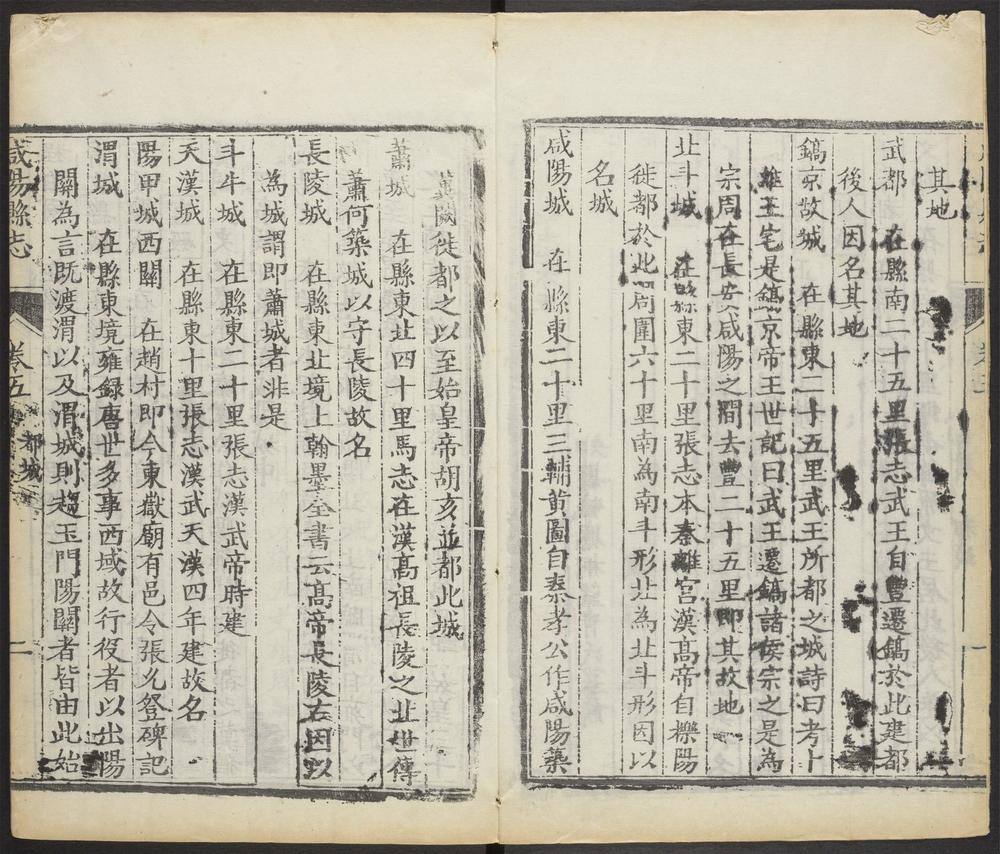 其地
武都　在縣南二十五里張志武王自豐遷鎬於此建都
後人因名其地
鎬京故城　在縣東二十五里武王所都之城詩曰考卜
維王宅是鎬京帝王世記曰武王遷鎬諸侯宗之是為
宗周在長安咸陽之間去豐二十五里即其故地
北斗城　在縣東二十里張志本秦離宮漢高帝自櫟陽
徙都於此周圍六十里南為南斗形北為北斗形因以
名城
咸陽城　在縣東二十里三輔黄圖自秦孝公作咸陽築
冀闕徙都之以至始皇帝胡亥並都此城
蕭城　在縣東北四十里馬志在漢高祖長陵之北世傳
蕭何築城以守長陵故名
長陵城　在縣東北境上翰墨全書云高帝長陵右因以
為城謂即蕭城者非是
斗牛城　在縣東二十里張志漢武帝時建
天漢城　在縣東十里張志漢武天漢四年建故名
陽甲城西關　在趙村即今東嶽廟有邑令張允登碑記
渭城　在縣東境雍録唐世多事西域故行役者以出陽
關為言既渡渭以及渭城則趨玉門陽關者皆由此始
咸陽縣志　卷五　都城　二